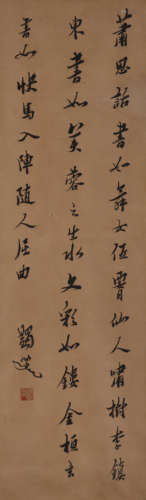 蕭思話書如舞女低腰仙人嘯樹李鎮
東書如芙蓉之出水文彩如鏤金桓玄
書如快馬入陣隨人屈曲
蠲叟